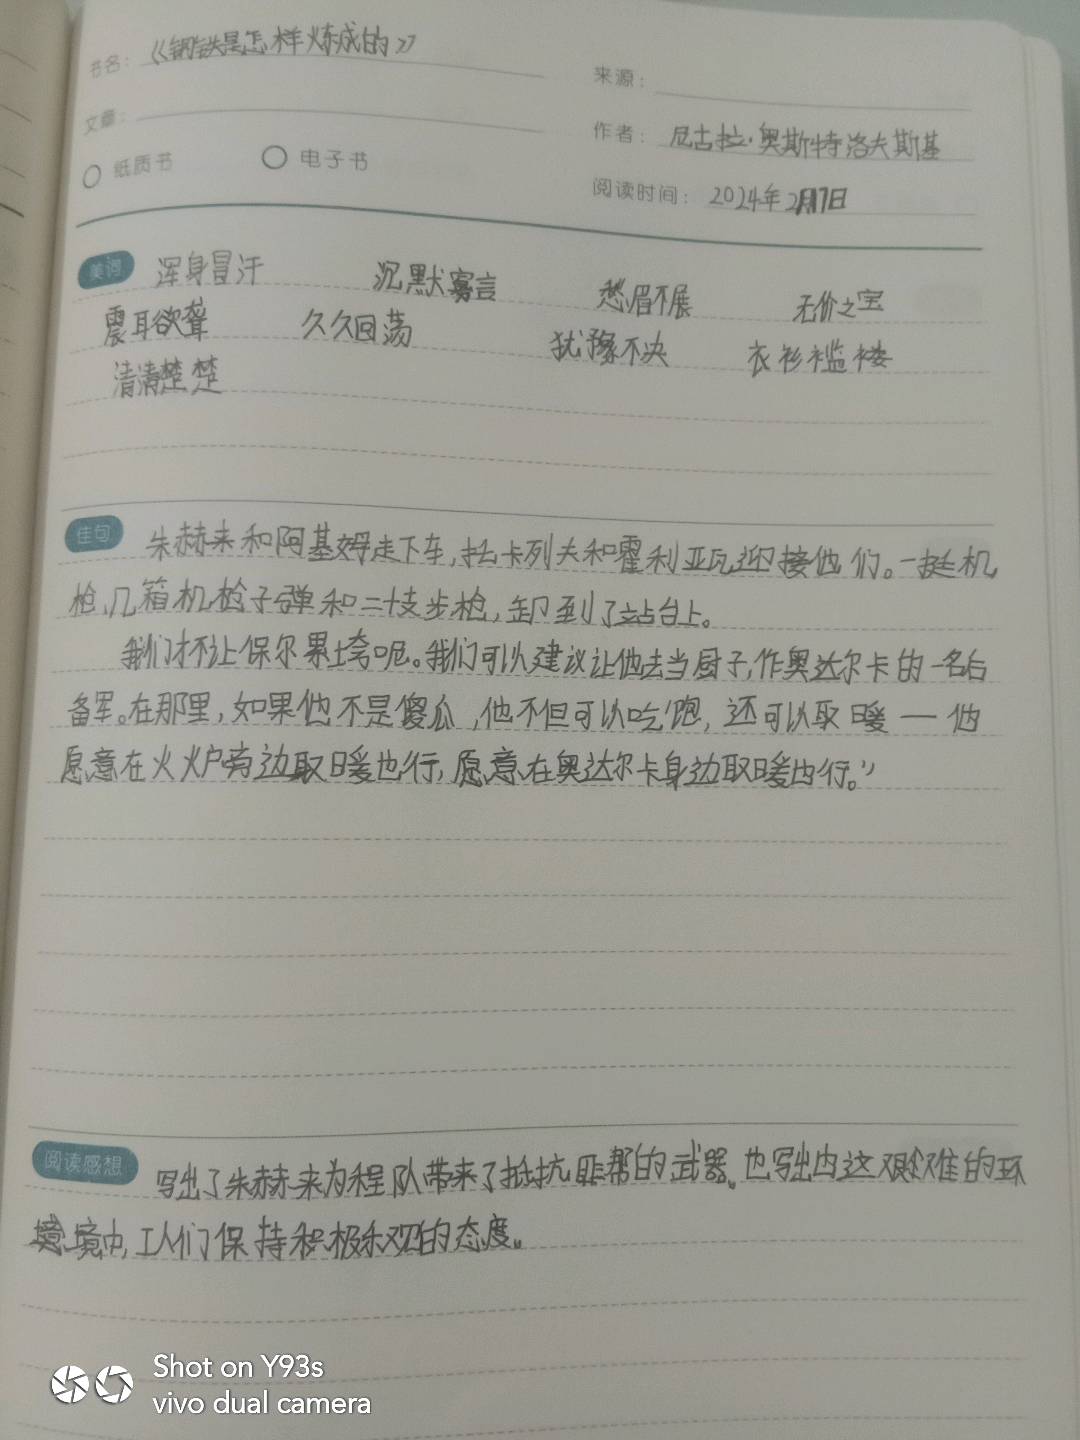 书名：《钢铁是怎样炼成的》
来源：
文章：
作者：尼古拉·奥斯特洛夫斯基
纸质书 电子书
阅读时间：2024年2月17日
美词 浑身冒汗 沉默寡言 愁眉不展 无价之宝
震耳欲聋 久久回荡 犹豫不决 衣衫褴褛
清清楚楚
佳句 朱赫来和阿基姆走下车,托卡列夫和霍利亚瓦迎接他们。一挺机
枪、几箱机枪子弹和二十支步枪,卸到了站台上。
我们才不让保尔累垮呢。我们可以建议让他去当厨子,作奥达尔卡的一名后
备军。在那里,如果他不是傻瓜,他不但可以吃饱,还可以取暖——他
愿意在火炉旁边取暖也行,愿意在奥达尔卡身边取暖也行。”
阅读感想 写出了朱赫来为程队带来了抵抗匪帮的武器。也写出内这艰难的环
境中,工人们保持积极乐观的态度。
Shot on Y93s
vivo dual camera